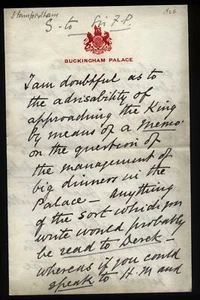 Stamfordham
S. to Sir F.P.
BUCKINGHAM PALACE
I am doubtful as to
the advisability of
approaching the King
by means of a Memo:
on the question of
the management of
big dinners in the
Palace — anything
of the sort which you
write would probably
be read to Derek —
whereas if you could
speak to H.M and